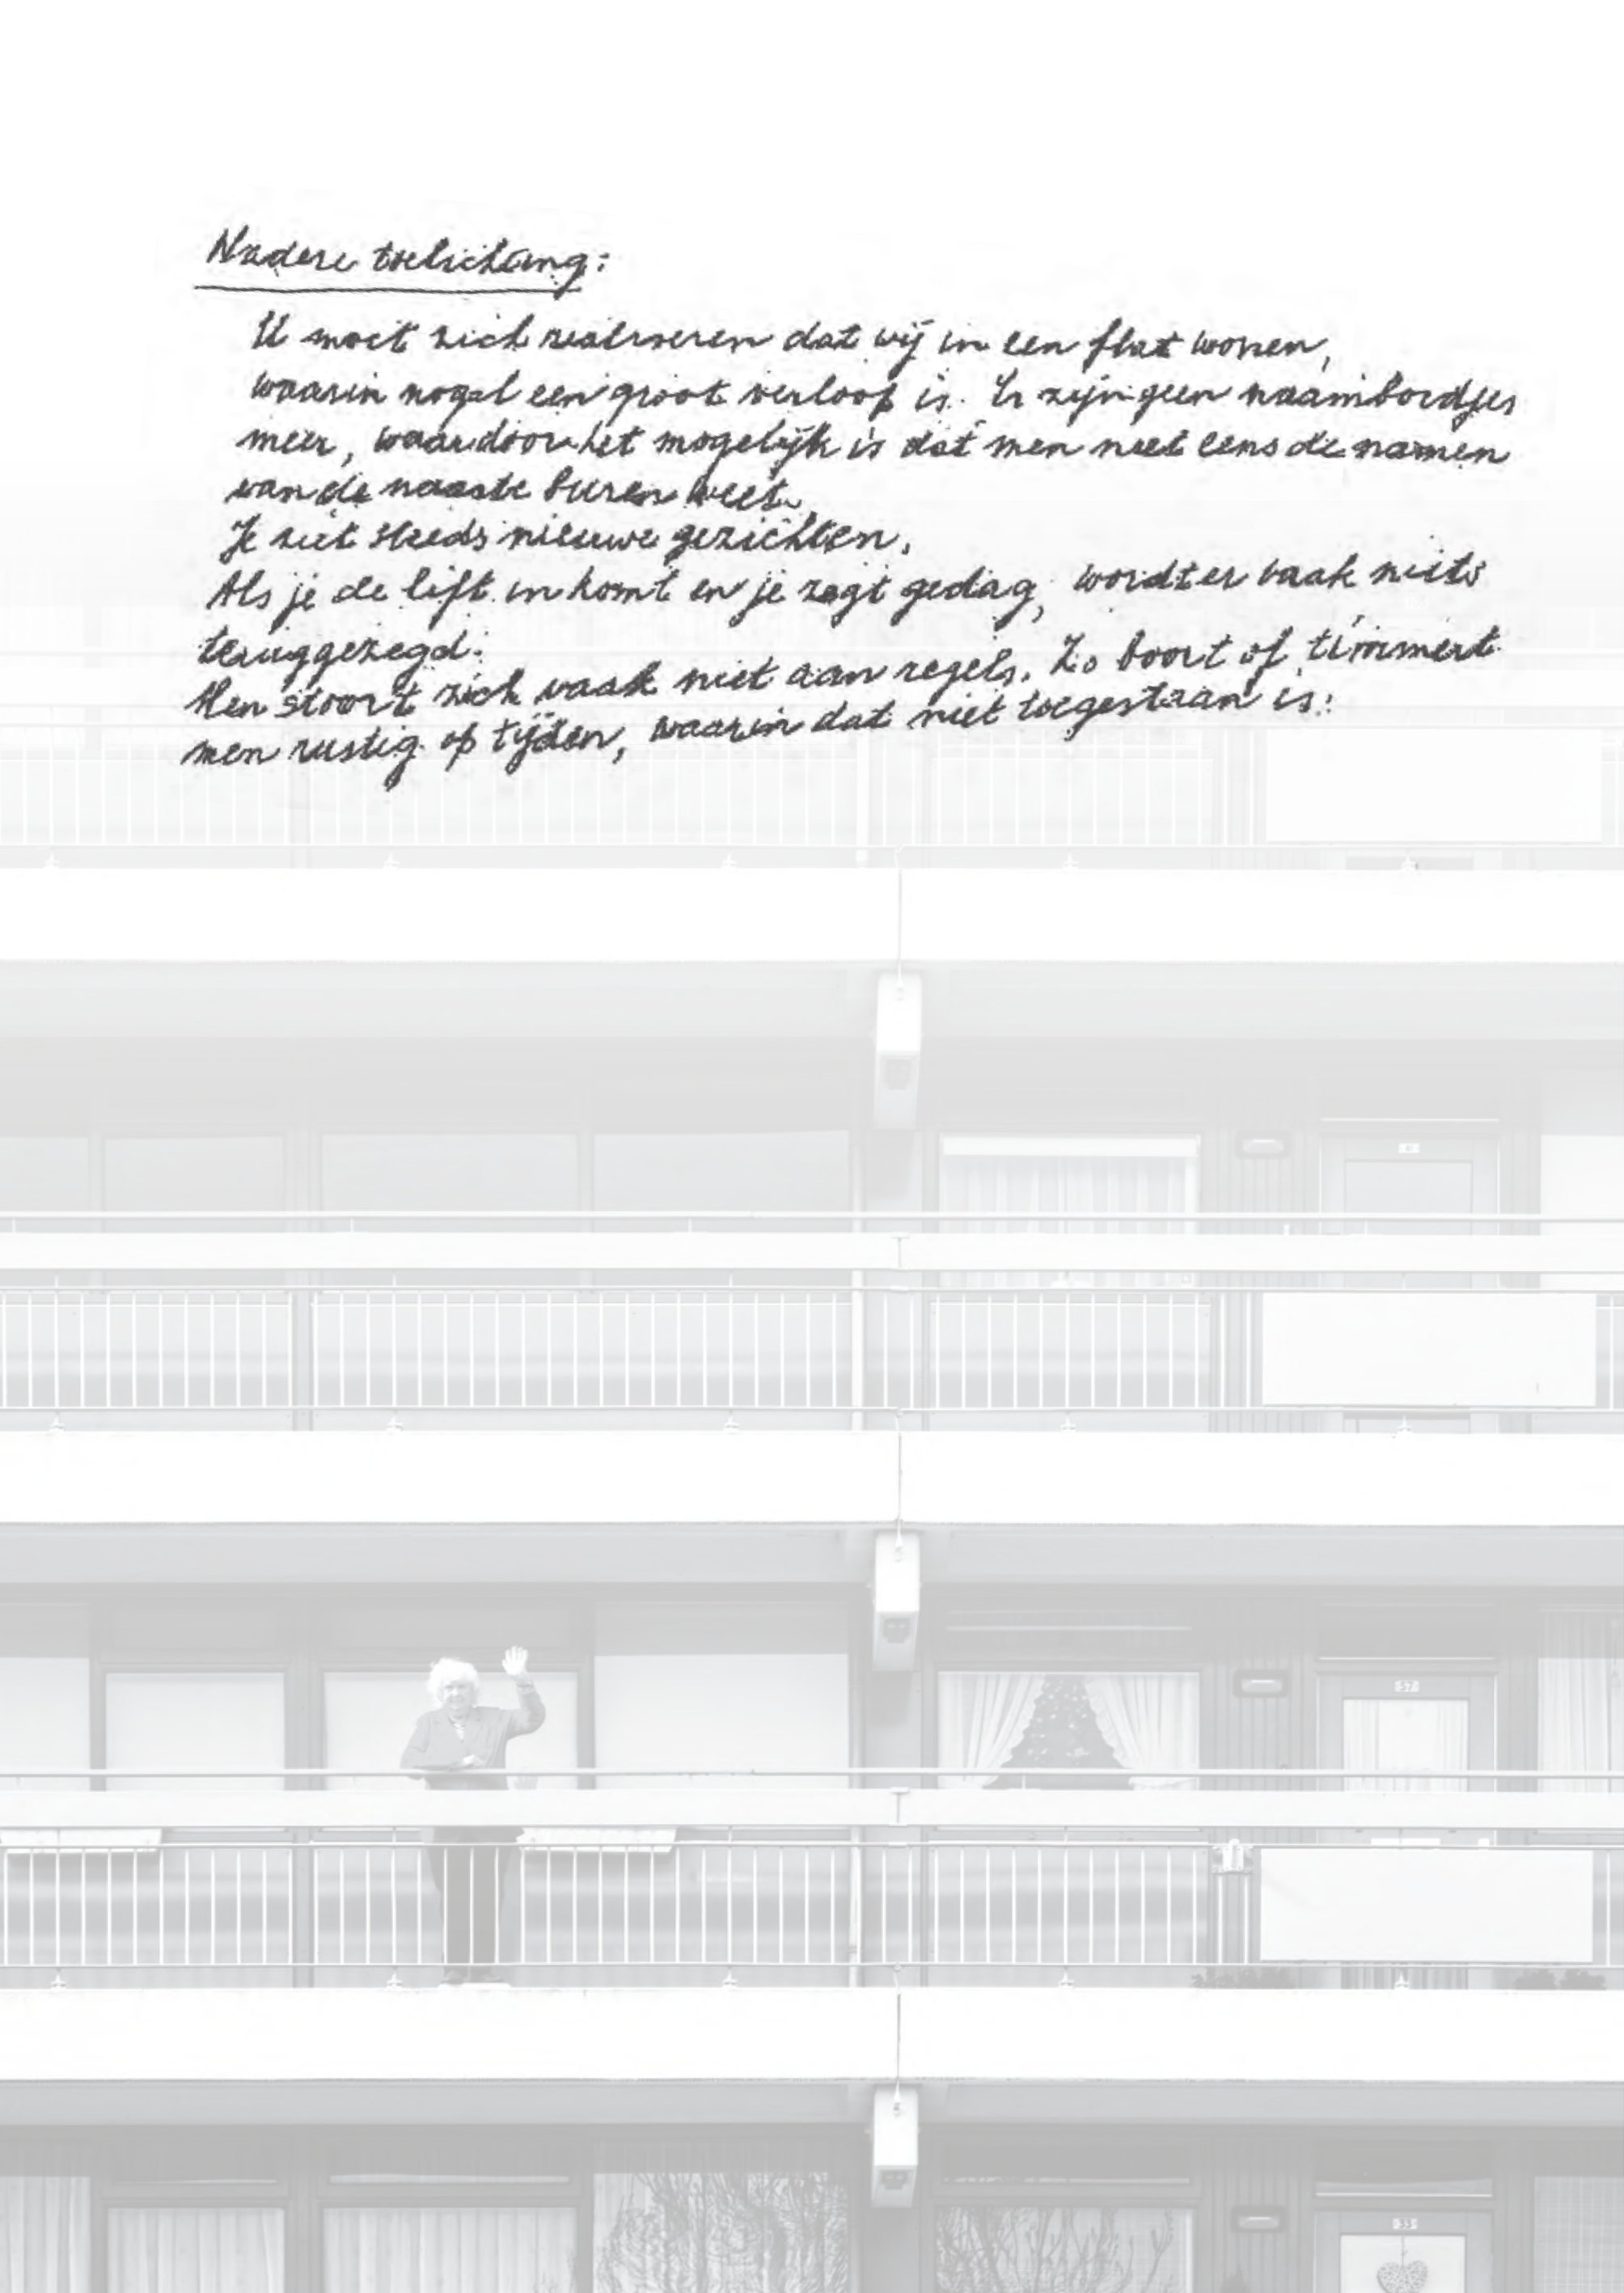 Nadere toelichting:
U moet zich realiseren dat wij in een flat wonen,
waarin nogal een groot verloop is. Er zijn geen naambordjes
meer, waardoor het mogelijk is dat men niet eens de namen
van de naaste buren weet.
Je ziet steeds nieuwe gezichten.
Als je de lift in komt en je zegt gedag, wordt er vaak niets
teruggezegd.
Men stoort zich vaak niet aan regels. Zo boort of timmert
men rustig op tijden, waarin dat niet toegestaan is.
57
33